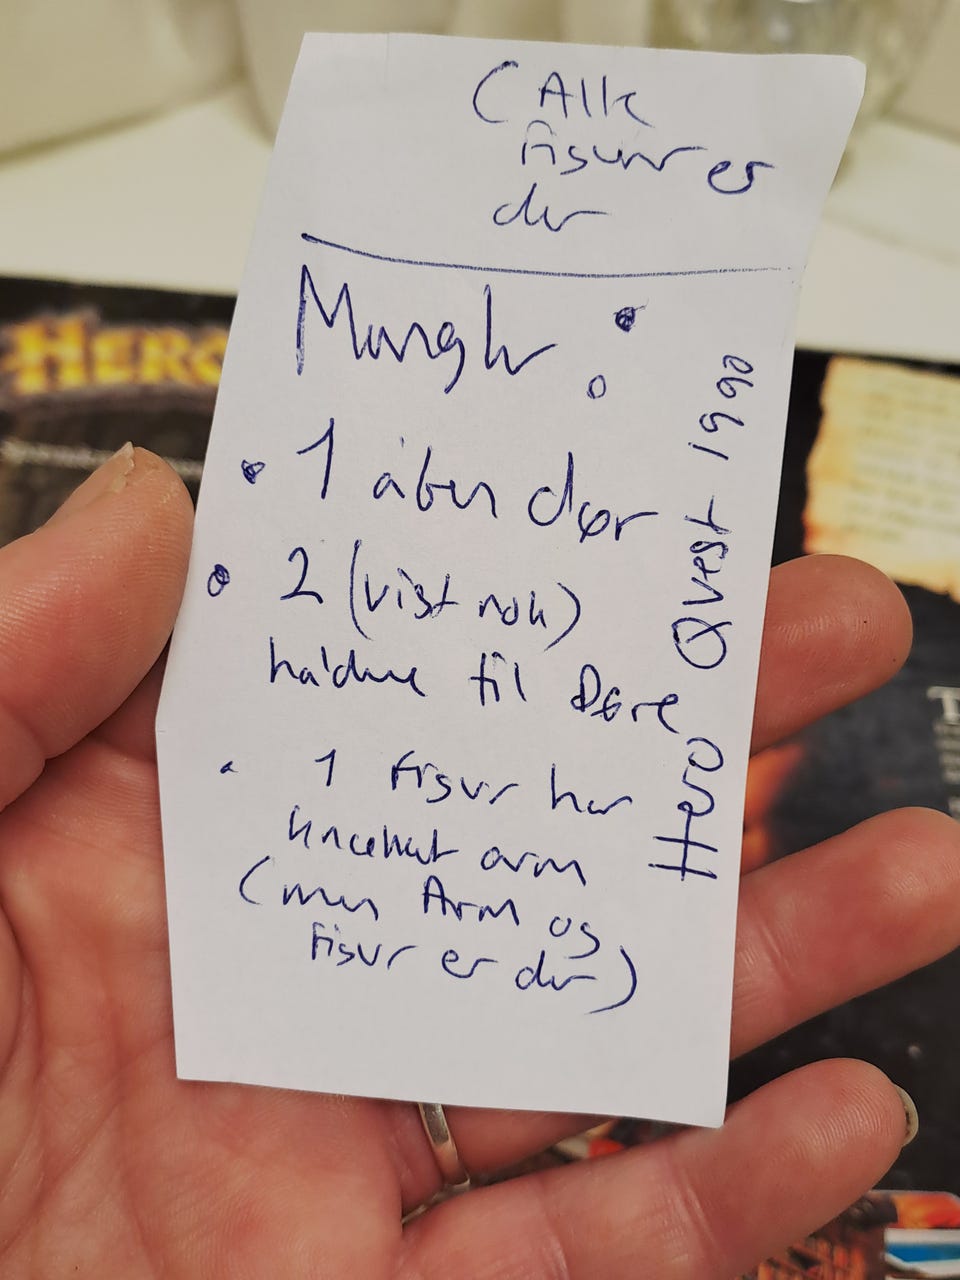 (Alle
figurer er
der
Mangler:
1 åben dør
2 (vist nok)
holdere til Døre
1 figur har
knækket arm
(men Arm og
figur er der)
Hero Qvest 1990
HERO